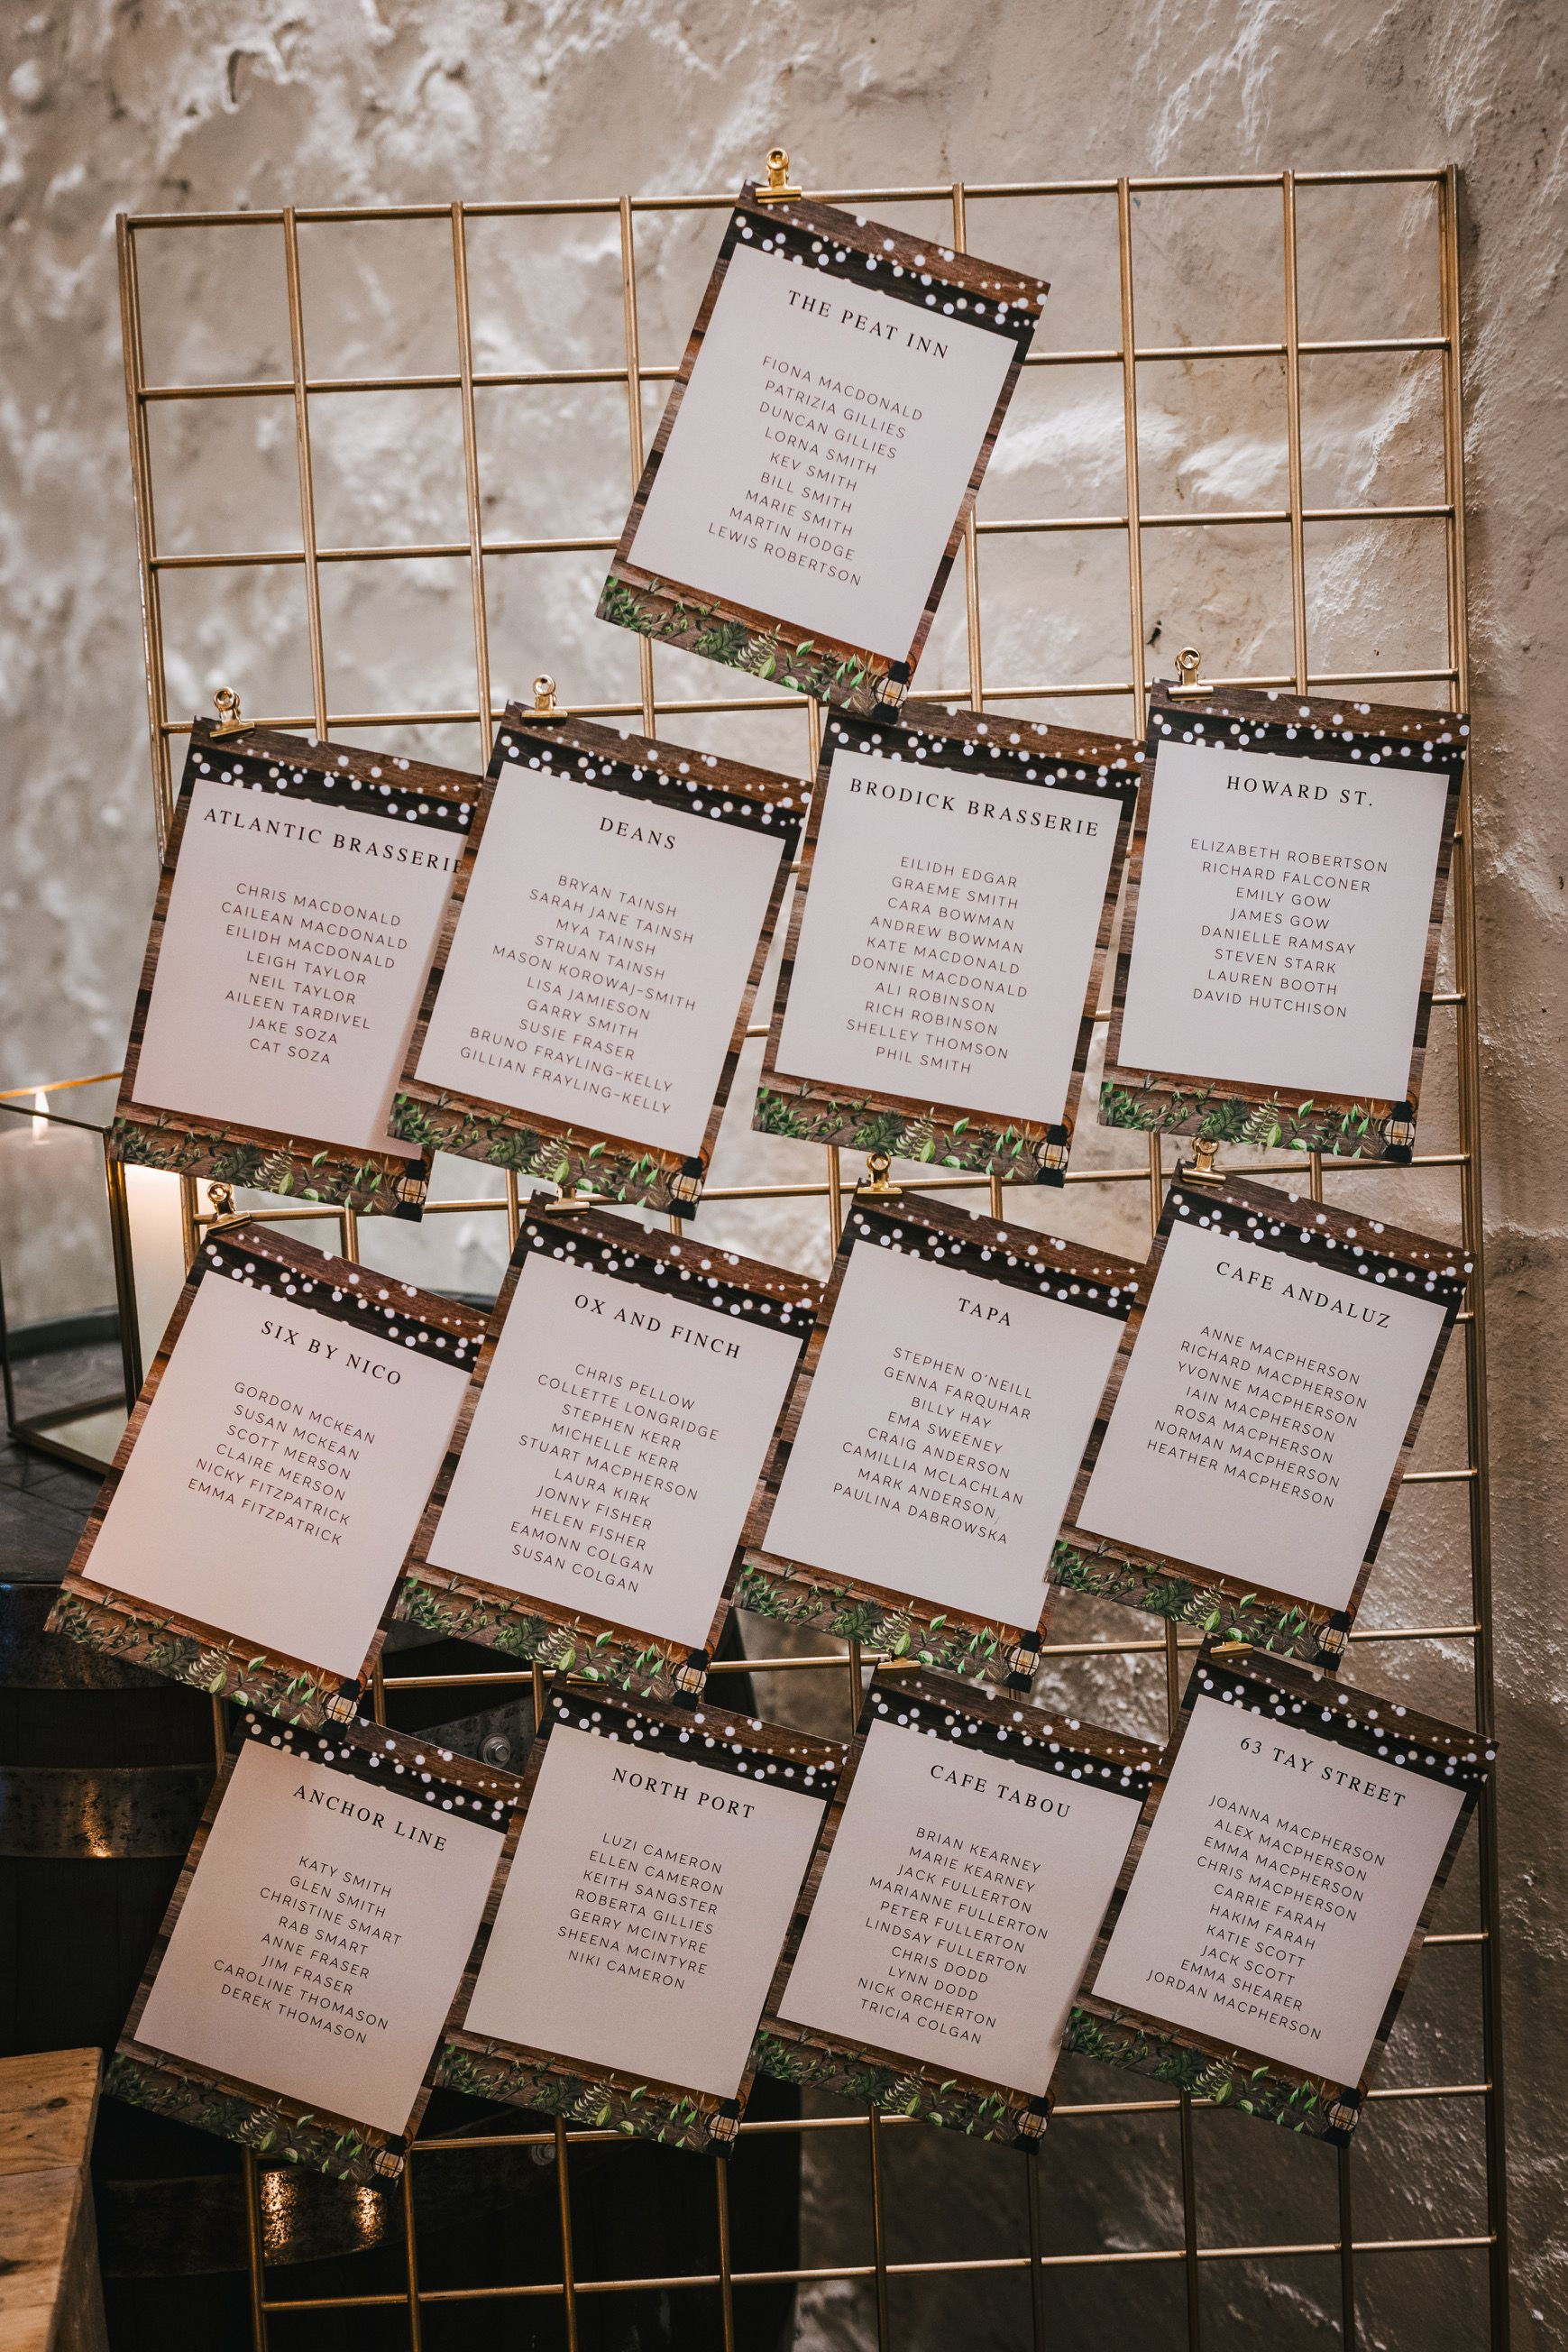 THE PEAT INN
FIONA MACDONALD
PATRIZIA GILLIES
DUNCAN GILLIES
LORNA SMITH
KEV SMITH
BILL SMITH
MARIE SMITH
MARTIN HODGE
LEWIS ROBERTSON
ATLANTIC BRASSERIE
CHRIS MACDONALD
CAILEAN MACDONALD
EILIDH MACDONALD
LEIGH TAYLOR
NEIL TAYLOR
AILEEN TARDIVEL
JAKE SOZA
CAT SOZA
DEANS
BRYAN TAINSH
SARAH JANE TAINSH
MYA TAINSH
STRUAN TAINSH
MASON KOROWAJ-SMITH
LISA JAMIESON
GARRY SMITH
SUSIE FRASER
BRUNO FRAYLING-KELLY
GILLIAN FRAYLING-KELLY
BRODICK BRASSERIE
EILIDH EDGAR
GRAEME SMITH
CARA BOWMAN
ANDREW BOWMAN
KATE MACDONALD
DONNIE MACDONALD
ALI ROBINSON
RICH ROBINSON
SHELLEY THOMSON
PHIL SMITH
HOWARD ST.
ELIZABETH ROBERTSON
RICHARD FALCONER
EMILY GOW
JAMES GOW
DANIELLE RAMSAY
STEVEN STARK
LAUREN BOOTH
DAVID HUTCHISON
SIX BY NICO
GORDON MCKEAN
SUSAN MCKEAN
SCOTT MERSON
CLAIRE MERSON
NICKY FITZPATRICK
EMMA FITZPATRICK
OX AND FINCH
CHRIS PELLOW
COLLETTE LONGRIDGE
STEPHEN KERR
MICHELLE KERR
STUART MACPHERSON
LAURA KIRK
JONNY FISHER
HELEN FISHER
EAMONN COLGAN
SUSAN COLGAN
TAPA
STEPHEN O'NEILL
GENNA FARQUHAR
BILLY HAY
EMA SWEENEY
CRAIG ANDERSON
CAMILLIA MCLACHLAN
MARK ANDERSON
PAULINA DABROWSKA
CAFE ANDALUZ
ANNE MACPHERSON
RICHARD MACPHERSON
YVONNE MACPHERSON
IAIN MACPHERSON
ROSA MACPHERSON
NORMAN MACPHERSON
HEATHER MACPHERSON
ANCHOR LINE
KATY SMITH
GLEN SMITH
CHRISTINE SMART
RAB SMART
ANNE FRASER
JIM FRASER
CAROLINE THOMASON
DEREK THOMASON
NORTH PORT
LUZI CAMERON
ELLEN CAMERON
KEITH SANGSTER
ROBERTA GILLIES
GERRY MCINTYRE
SHEENA MCINTYRE
NIKI CAMERON
CAFE TABOU
BRIAN KEARNEY
MARIE KEARNEY
JACK FULLERTON
MARIANNE FULLERTON
PETER FULLERTON
LINDSAY FULLERTON
CHRIS DODD
LYNN DODD
NICK ORCHERTON
TRICIA COLGAN
63 TAY STREET
JOANNA MACPHERSON
ALEX MACPHERSON
EMMA MACPHERSON
CHRIS MACPHERSON
CARRIE FARAH
HAKIM FARAH
KATIE SCOTT
JACK SCOTT
EMMA SHEARER
JORDAN MACPHERSON